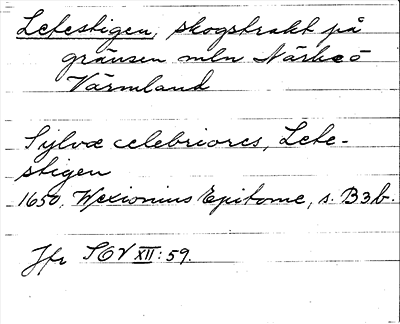 Letestigen, skogstrakt på
gränsen mln Närke o
Värmland
Sylvæ celebriores, Lete-
stigen
1650. Wexionius Epitome, s. B3b.
Jfr SOV XII: 59.